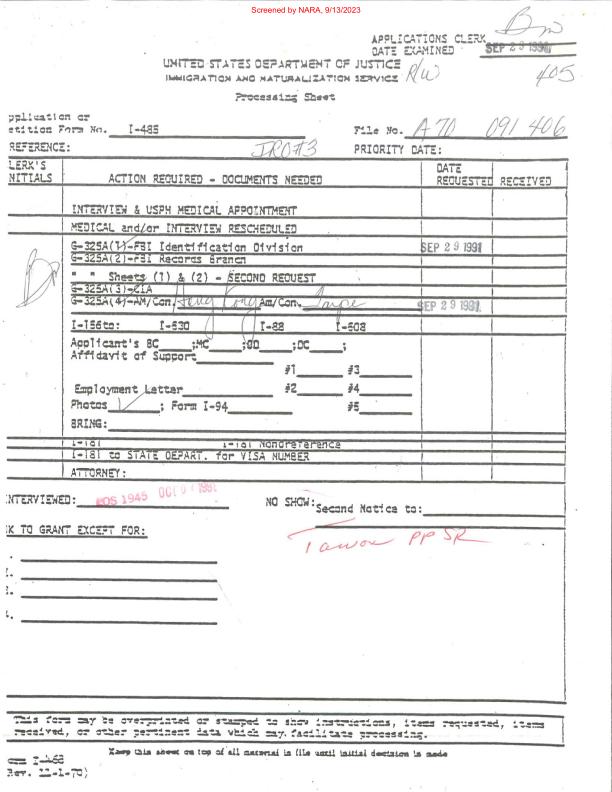 Screened by NARA, 9/13/2023
APPLICATIONS CLERK
DATE EXAMINED SEP 29 1991
UNITED STATES DEPARTMENT OF JUSTICE
IMMIGRATION AND NATURALIZATION SERVICE R/W 405
Processing Sheet
pplication or
etition Form No. I-485 File No. A70 091 406
REFERENCE: PRIORITY DATE:
LERK'S
NITIALS ACTION REQUIRED - DOCUMENTS NEEDED DATE REQUESTED RECEIVED
INTERVIEW & USPH MEDICAL APPOINTMENT
MEDICAL and/or INTERVIEW RESCHEDULED
G-325A(1)-FBI Identification Division SEP 29 1991
G-325A(2)-FBI Records Branch
" " Sheets (1) & (2) - SECOND REQUEST
G-325A(3)-CIA
G-325A(4)-AM/Con. Hong Kong Am/Con. Taipei SEP 29 1991
I-156to: I-530 I-88 I-508
Applicant's BC ;MC ;GD ;DC ;
Affidavit of Support
#1 #3
Employment Letter #2 #4
Photos ; Form I-94 #5
BRING:
I-181 I-181 Nonreference
I-181 to STATE DEPART. for VISA NUMBER
ATTORNEY:
NTERVIEWED: 1945 1991 NO SHOW: Second Notice to:
K TO GRANT EXCEPT FOR:
Taiwan PP SR
This form may be overprinted or stamped to show instructions, items requested, items
received, or other pertinent data which may facilitate processing.
Keep this sheet on top of all material in file until initial decision is made
orm I-468
Rev. 11-1-70)